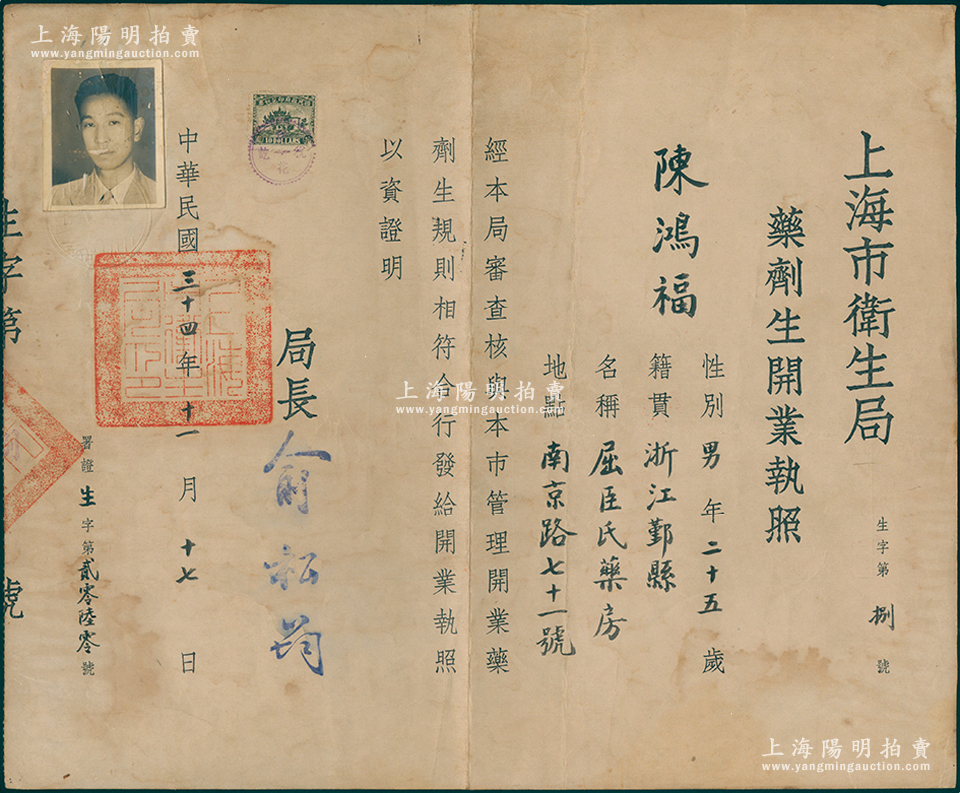 上海陽明拍賣
www.yangmingauction.com
上海市衛生局
藥劑生開業執照
生字第捌號
陳鴻福
性別男年二十五歲
籍貫浙江鄞縣
名稱屈臣氏藥房
地點南京路七十一號
經本局審查核與本市管理開業藥
劑生規則相符合行發給開業執照
以資證明
局長俞松筠
中華民國三十四年十一月十七日
署證生字第貳零陸零號
生字第
號
上海陽明拍賣
www.yangmingauction.com
上海陽明拍賣
www.yangmingauction.com